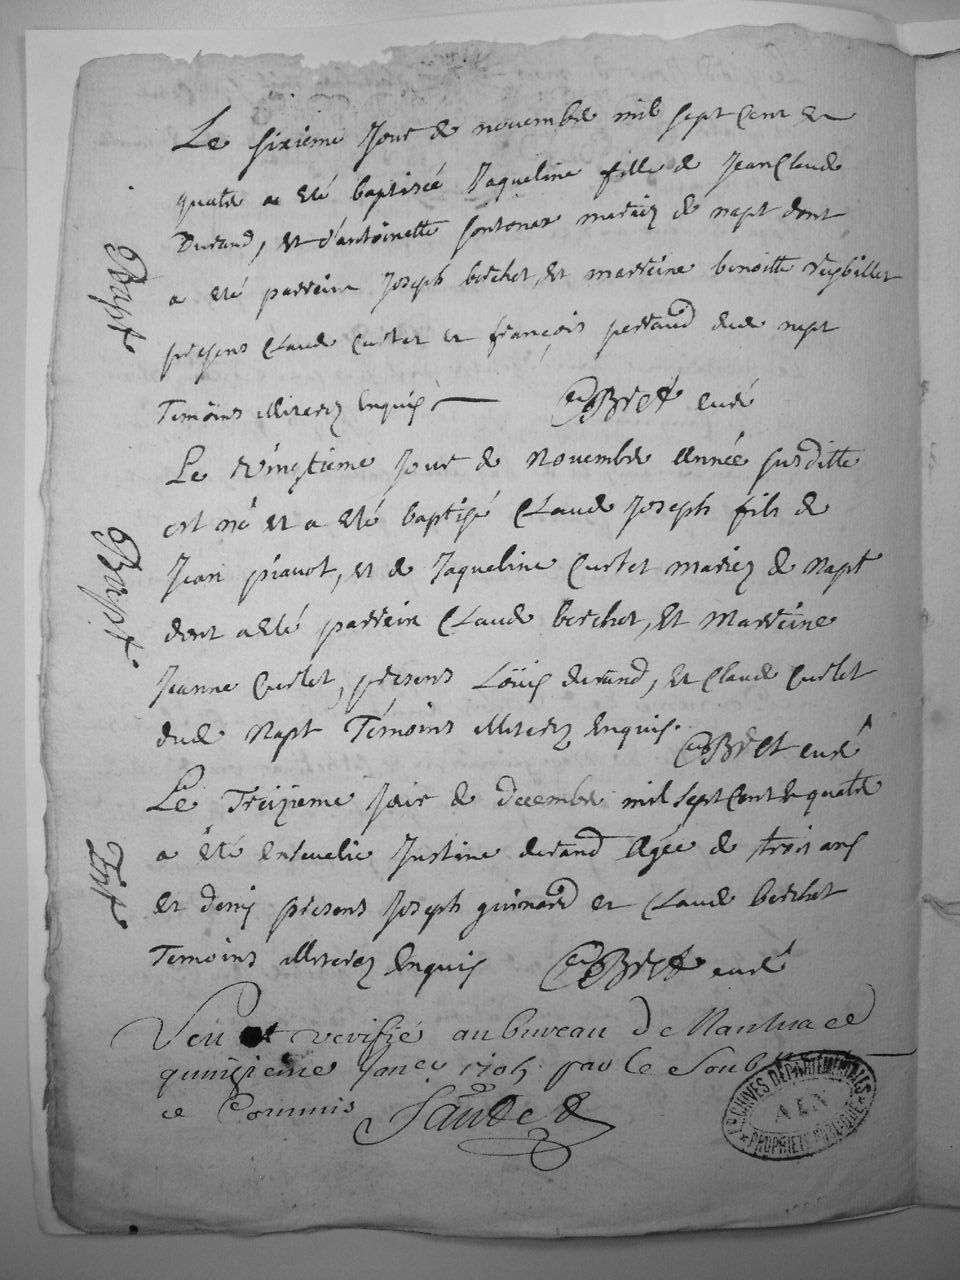 Le sixieme Jour de novembre mil sept Cent et
quatre a eté baptiseé Jaqueline fille de Jean Claude
Bapt.
Durand, et d'antoinette fontonas mariez de napt dont
a eté parrein Joseph berchet, et marreine benoitte
presens Claude Curtet et françois perraud dud. napt
Temoins illiterez Enquis CBret curé
Le vingtieme Jour de Novembre Année susditte
est né et a eté baptisé Claude Joseph fils de
Bapt.
Jean piauot, et de Jaqueline Curtet mariez de Napt
dont a eté parrein Claude berchet, et Marreine
Jeanne Curtet, presens Loüis durand, et Claude Curtet
dud. Napt Témoins illiterez Enquis. CBret curé
Le Treizieme Jour de decembre mil sept Cent et quatre
Ent.
a été ensevelie Justine durand Agée de trois ans
et demy presens Joseph guinard et Claude berchet
Temoins illiterez Enquis CBret curé
Veu et verifié au bureau De Nantua ce
quinzieme Janer 1705 par le Soub
e Commis
ARCHIVES DÉPARTEMENTALES
AIN
PROPRIÉTÉ PUBLIQUE